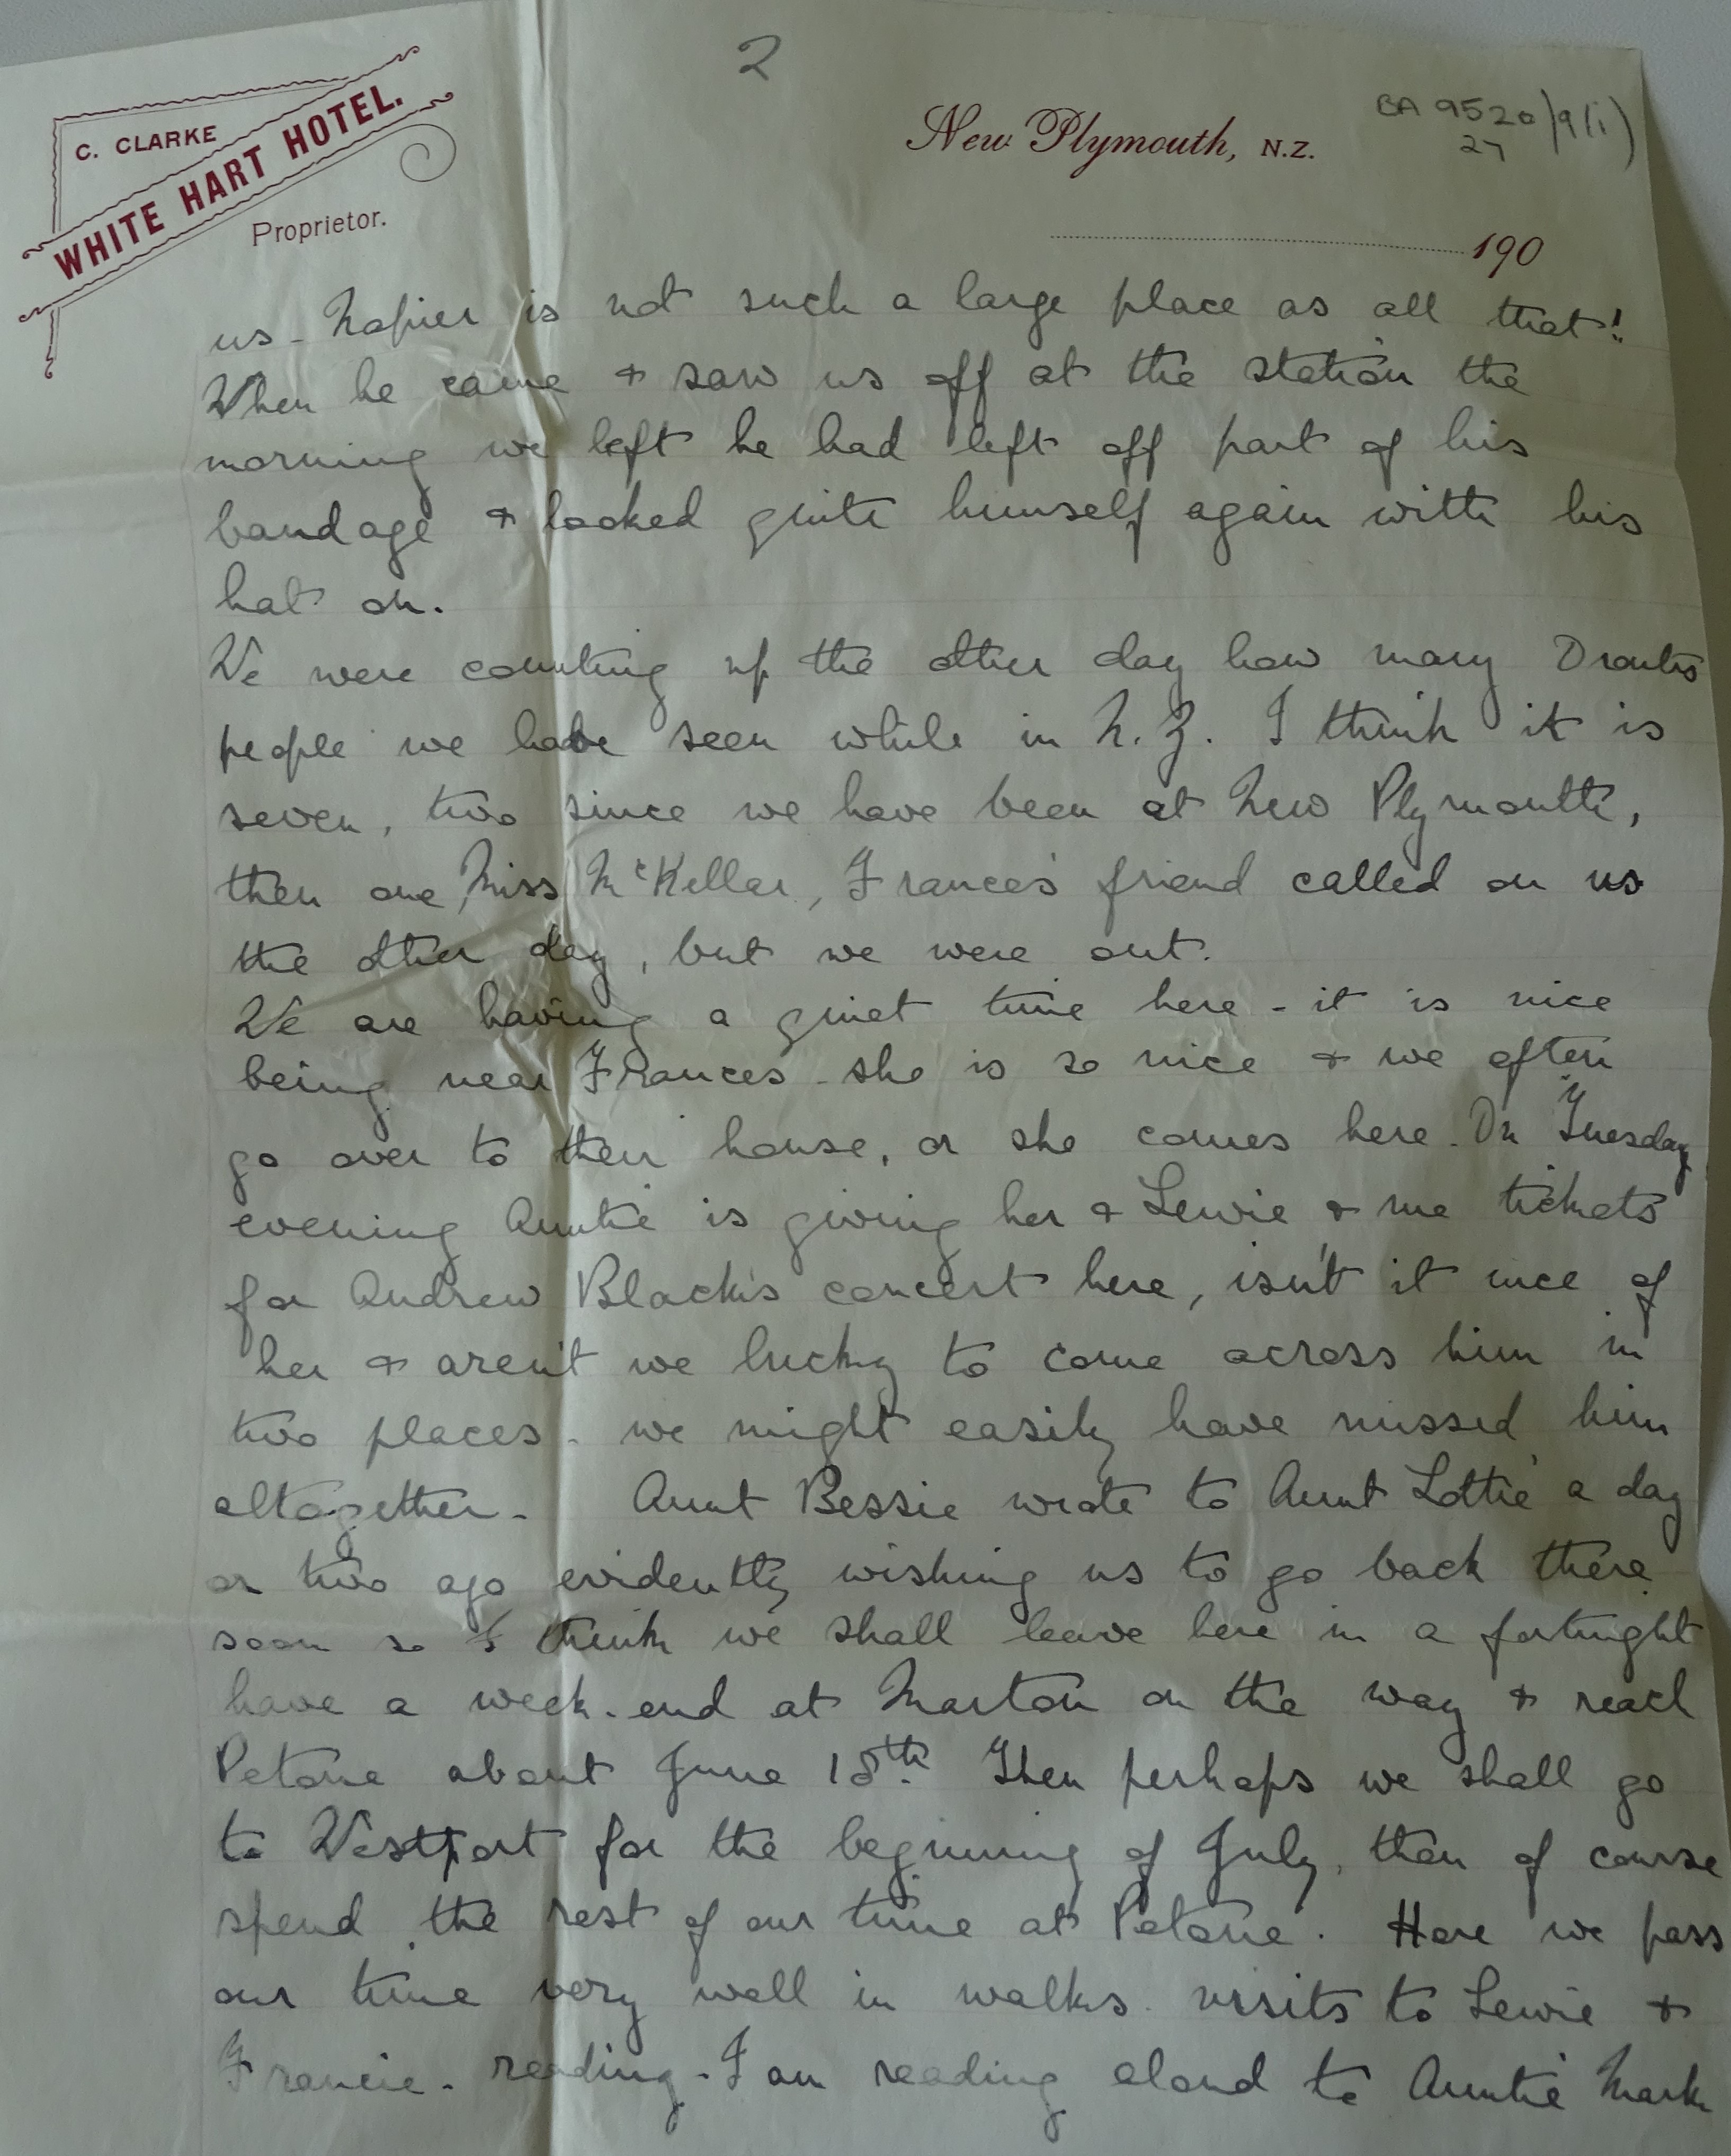 2
BA 9520/9(i)
27
C. CLARKE
WHITE HART HOTEL.
Proprietor.
New Plymouth, N.Z.
190
us - Napier is not such a large place as all that!
When he came & saw us off at the station the
morning we left he had left off part of his
bandage & looked quite himself again with his
hat on.
We were counting up the other day how many
people we have seen while in N.Z. I think it is
seven, two since we have been at New Plymouth,
then one Miss McKellar, Frances friend called on us
the other day, but we were out.
We are having a quiet time here - it is nice
being near Frances - she is so nice & we often
go over to their house, or she comes here. On Tuesday
evening Auntie is giving her & Lewie & me tickets
for Andrew Black's concert here, isn't it nice of
her & aren't we lucky to come across him in
two places - we might easily have missed him
altogether - Aunt Bessie wrote to Aunt Lottie a day
or two ago evidently wishing us to go back there
soon so I think we shall leave here in a fortnight
have a week-end at Marton on the way & reach
Petone about June 18th. Then perhaps we shall go
to Westport for the beginning of July, then of course
spend the rest of our time at Petone. Here we pass
our time very well in walks. visits to Lewie &
Francie - reading - I am reading aloud to Auntie Mark